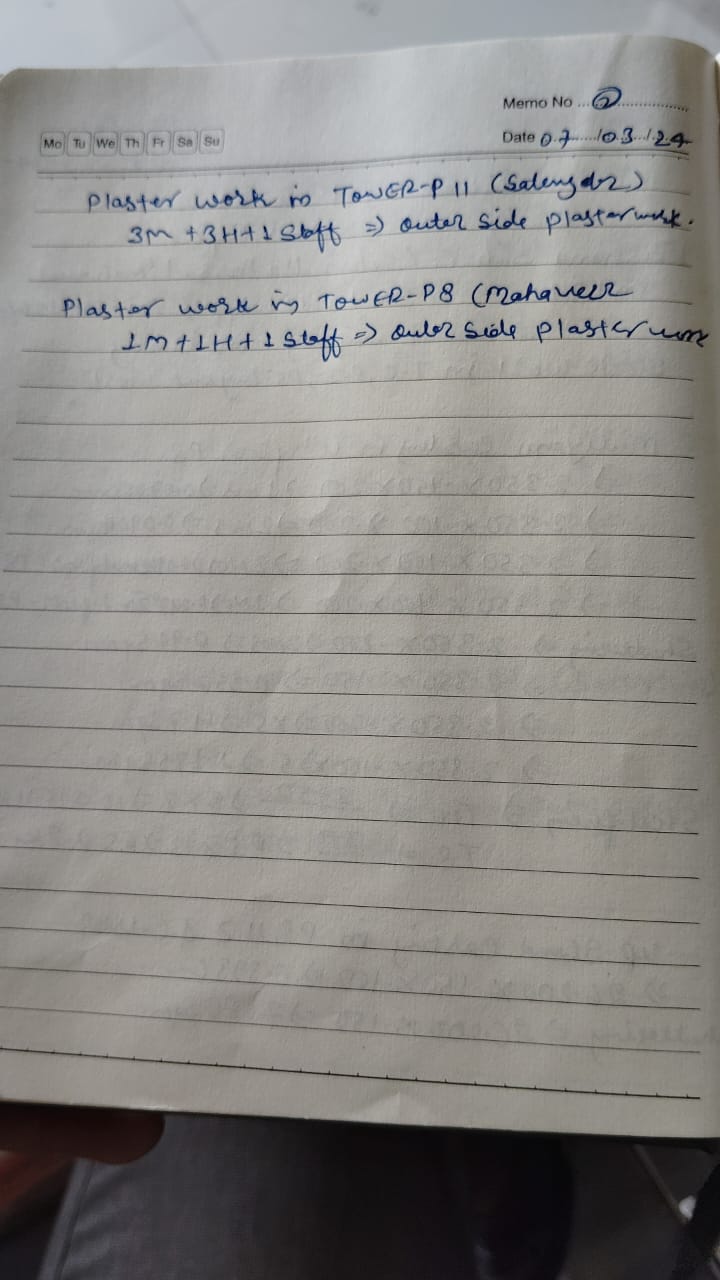 Memo No ② 
Mo Tu We Th Fr Sa Su
Date 07/03/24
Plaster work in TOWER-P11 (Salengdr)
3M + 3H + 1 Staff => outer side plaster work.
Plaster work in TOWER-P8 (Mahaveer
1M + 1H + 1 Staff => outer side plaster work